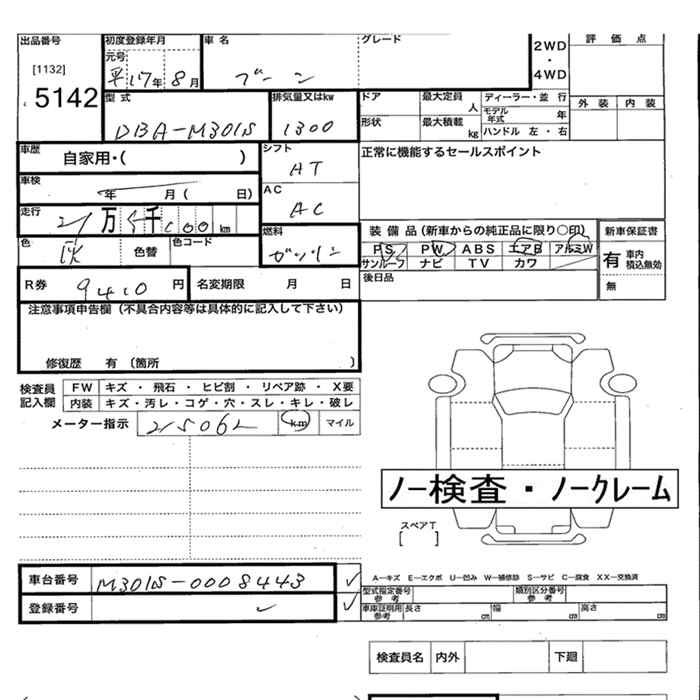 出品番号 初度登録年月 車名 グレード 2WD・4WD 評価点
[1132] 元号 平17年8月 ブーン
5142 型式 排気量又はkw ドア 最大定員 人 ディーラー・並行 外装 内装
DBA-M301S 1300 形状 最大積載 kg モデル年式 年
ハンドル 左・右
車歴 自家用・( ) シフト AT 正常に機能するセールスポイント
車検 年 月( 日) AC AC
走行 21万 千 00 km 燃料 ガソリン 装備品(新車からの純正品に限り○印) 新車保証書
色 色替 色コード PS PW ABS エアB アルミW 有 車内積込無効
サンルーフ ナビ TV カワ 無
R券 9410円 名変期限 月 日 後日品
注意事項申告欄(不具合内容等は具体的に記入して下さい)
修復歴 有〔箇所 〕
検査員記入欄 FW キズ・飛石・ヒビ割・リペア跡・X要
内装 キズ・汚レ・コゲ・穴・スレ・キレ・破レ
メーター指示 215062 km マイル
ノー検査・ノークレーム
スペアT
[ ]
車台番号 M301S-0008443 ✓ A－キズ E－エクボ U－凹み W－補修跡 S－サビ C－腐食 XX－交換済
登録番号 ✓ ✓ 型式指定番号参考 類別区分番号参考
車庫証明用参考 長さ cm 幅 cm 高さ cm
検査員名 内外 下廻